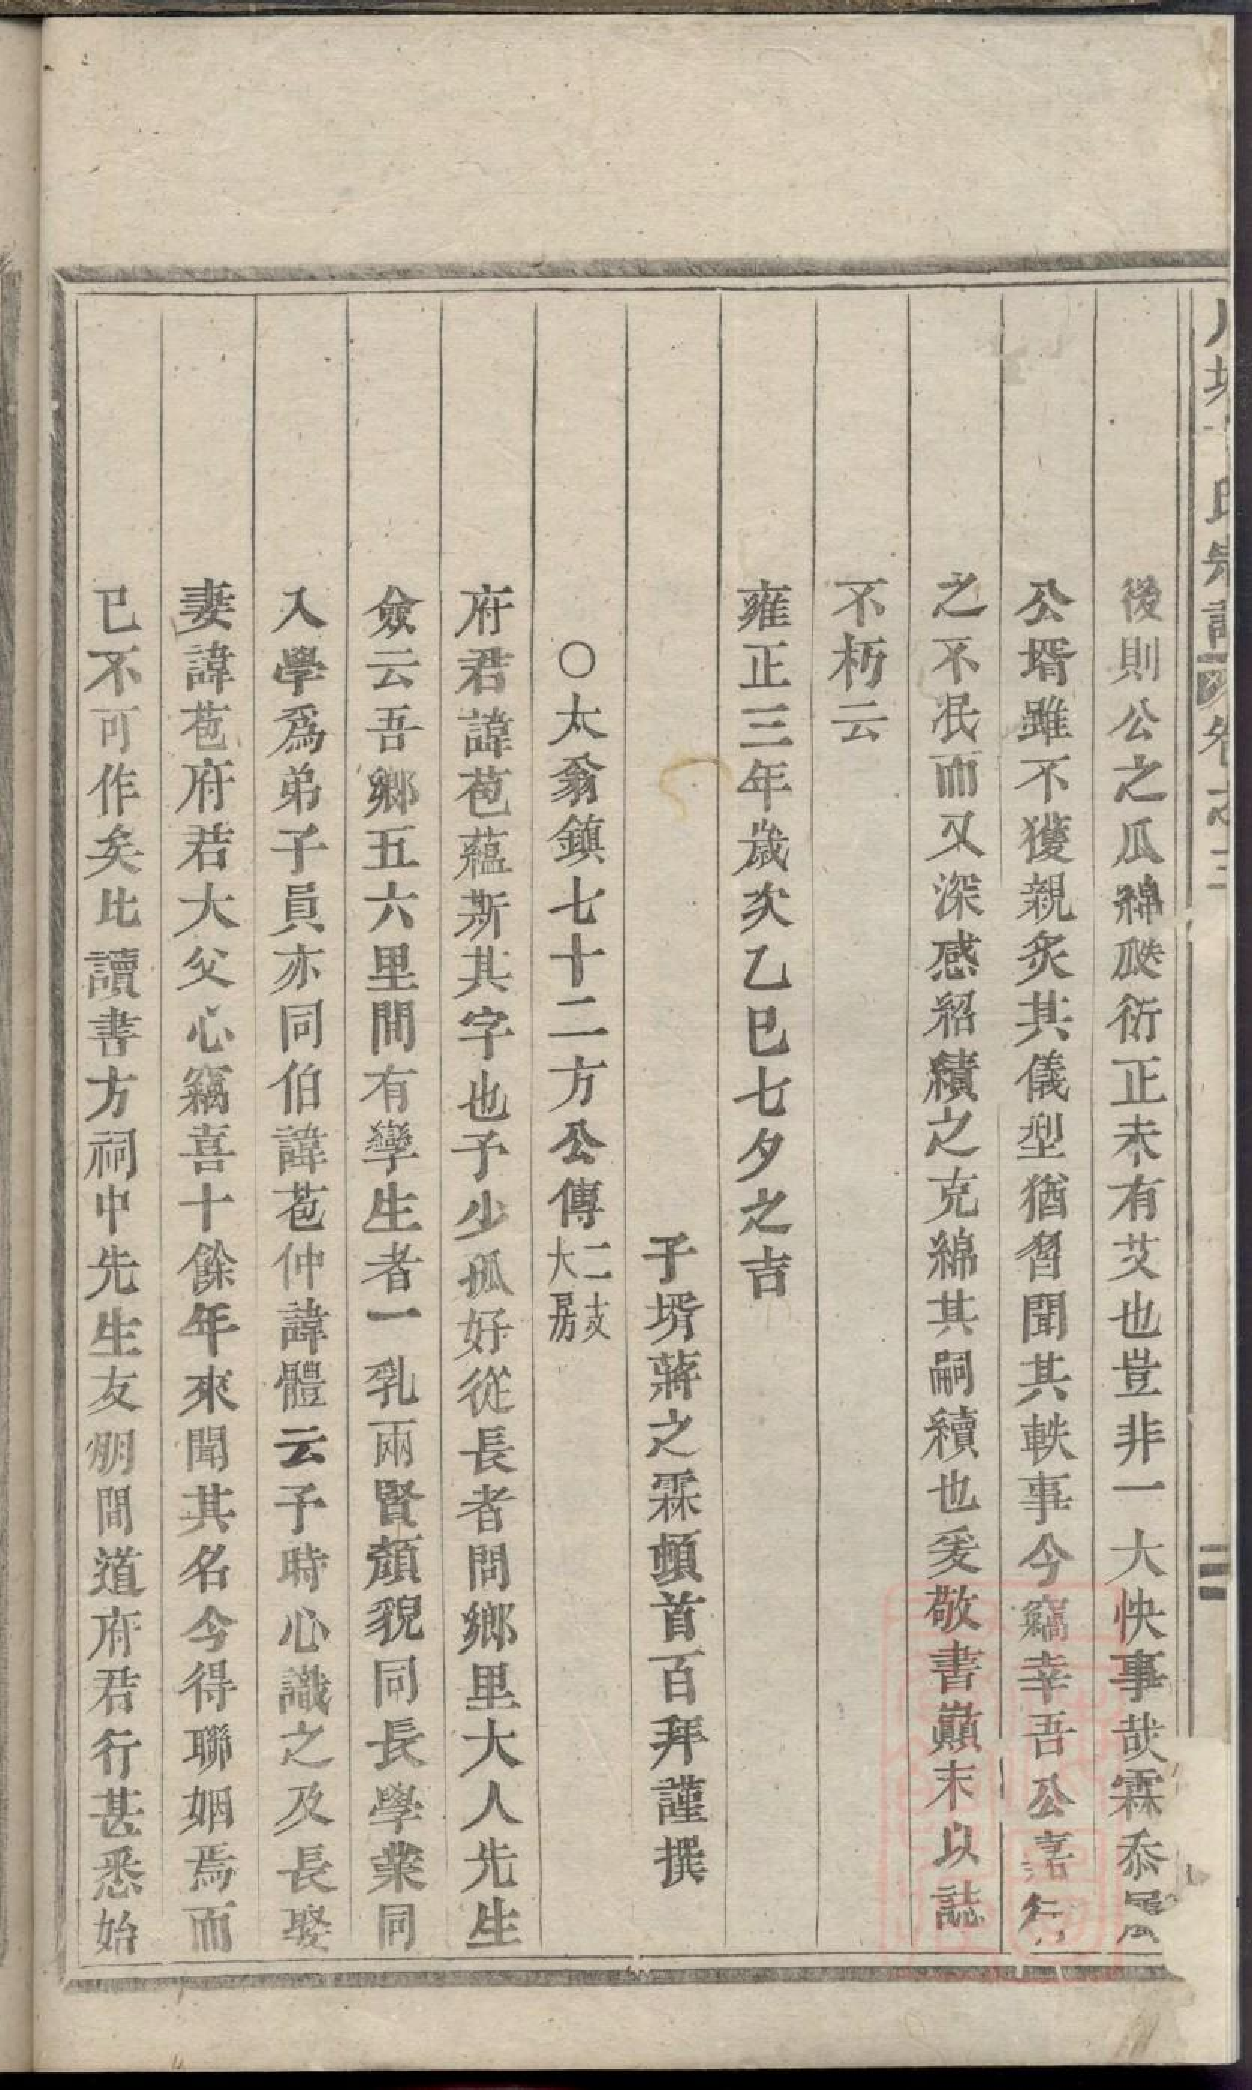 氏宗譜 卷之三
後則公之瓜綿瓞衍正未有艾也豈非一大快事哉霖忝
公壻雖不獲親炙其儀型猶習聞其軼事今竊幸吾公嘉
之不泯而又深感紹績之克綿其嗣續也爰敬書巔末以誌
不朽云
雍正三年歲次乙巳七夕之吉
子壻蔣之霖頓首百拜謹撰
○太翁鎮七十二方公傳二支大房
府君諱苞蘊斯其字也予少孤好從長者問鄉里大人先生
僉云吾鄉五六里間有孿生者一乳兩賢顏貌同長學業同
入學爲弟子員亦同伯諱苞仲諱體云予時心識之及長娶
妻諱苞府君大父心竊喜十餘年來聞其名今得聯姻焉而
已不可作矣比讀書方祠中先生友朋間道府君行甚悉始